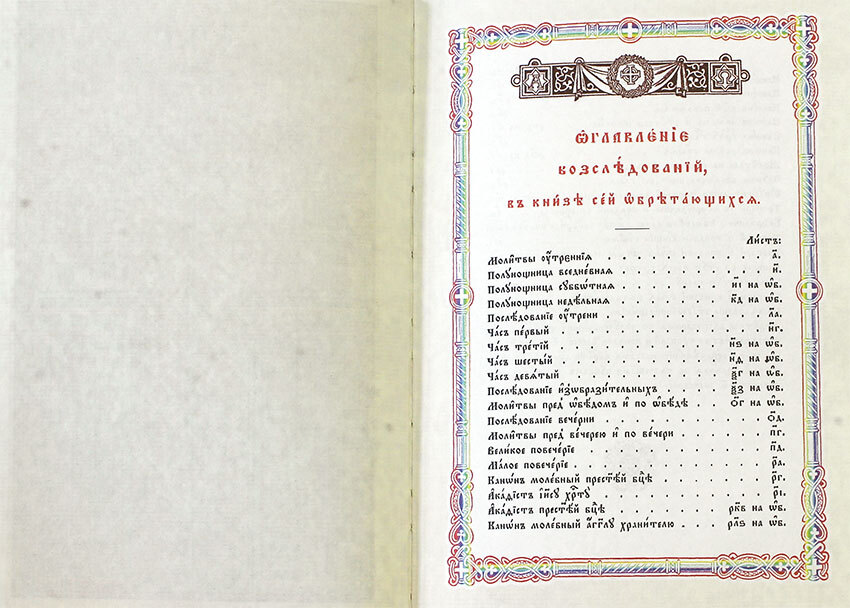 Ѡ҆главле́нїе
возслѣ́дованїй,
въ кни́зѣ се́й ѡ҆брѣта́ющихсѧ.
Ли́стъ:
Моли̑твы ᲂу҆́трєннїѧ . . . . . . . . . . а҃.
Полꙋ́нощница вседне́внаѧ . . . . . . . . и҃.
Полꙋ́нощница сꙋббѡ́тнаѧ . . . . . . н҃і на ѡ҆б.
Полꙋ́нощница недѣ́льнаѧ . . . . . . к҃д на ѡ҆б.
Послѣ́дованїе ᲂу҆́трени . . . . . . . . . л҃а.
Ча́съ пе́рвый . . . . . . . . . . . . н҃г.
Ча́съ тре́тїй . . . . . . . . . . н҃ѕ на ѡ҆б.
Ча́съ шесты́й . . . . . . . . . . на ѡ҆б.
Ча́съ девѧ́тый . . . . . . . . . . ѯ҃г на ѡ҆б.
Послѣ́дованїе и҆з̾ѡбрази́тельныхъ . . . . ѯ҃з на ѡ҆б.
Моли̑твы пред̾ ѡ҆бѣ́домъ и҆ по ѡ҆бѣ́дѣ . . о҃г на ѡ҆б.
Послѣ́дованїе вече́рни . . . . . . . . . о҃д.
Моли̑твы пред̾ ве́черею и҆ по ве́чери . . . . . п҃г.
Вели́кое повече́рїе . . . . . . . . . . п҃д.
Ма́лое повече́рїе . . . . . . . . . . . р҃а.
Канѡ́нъ моле́бный прест҃ѣ́й бц҃ѣ . . . . . . р҃г.
А҆ка́ѳїстъ і҆и҃сꙋ хрⷭ҇тꙋ̀ . . . . . . . . . . р҃і.
А҆ка́ѳїстъ прест҃ѣ́й бц҃ѣ . . . . . . рк҃в на ѡ҆б.
Канѡ́нъ моле́бный а҆́гг҃лꙋ храни́телю . . . рл҃ѕ на ѡ҆б.